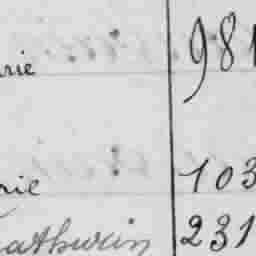 rie 981
rie 103
athurin 231